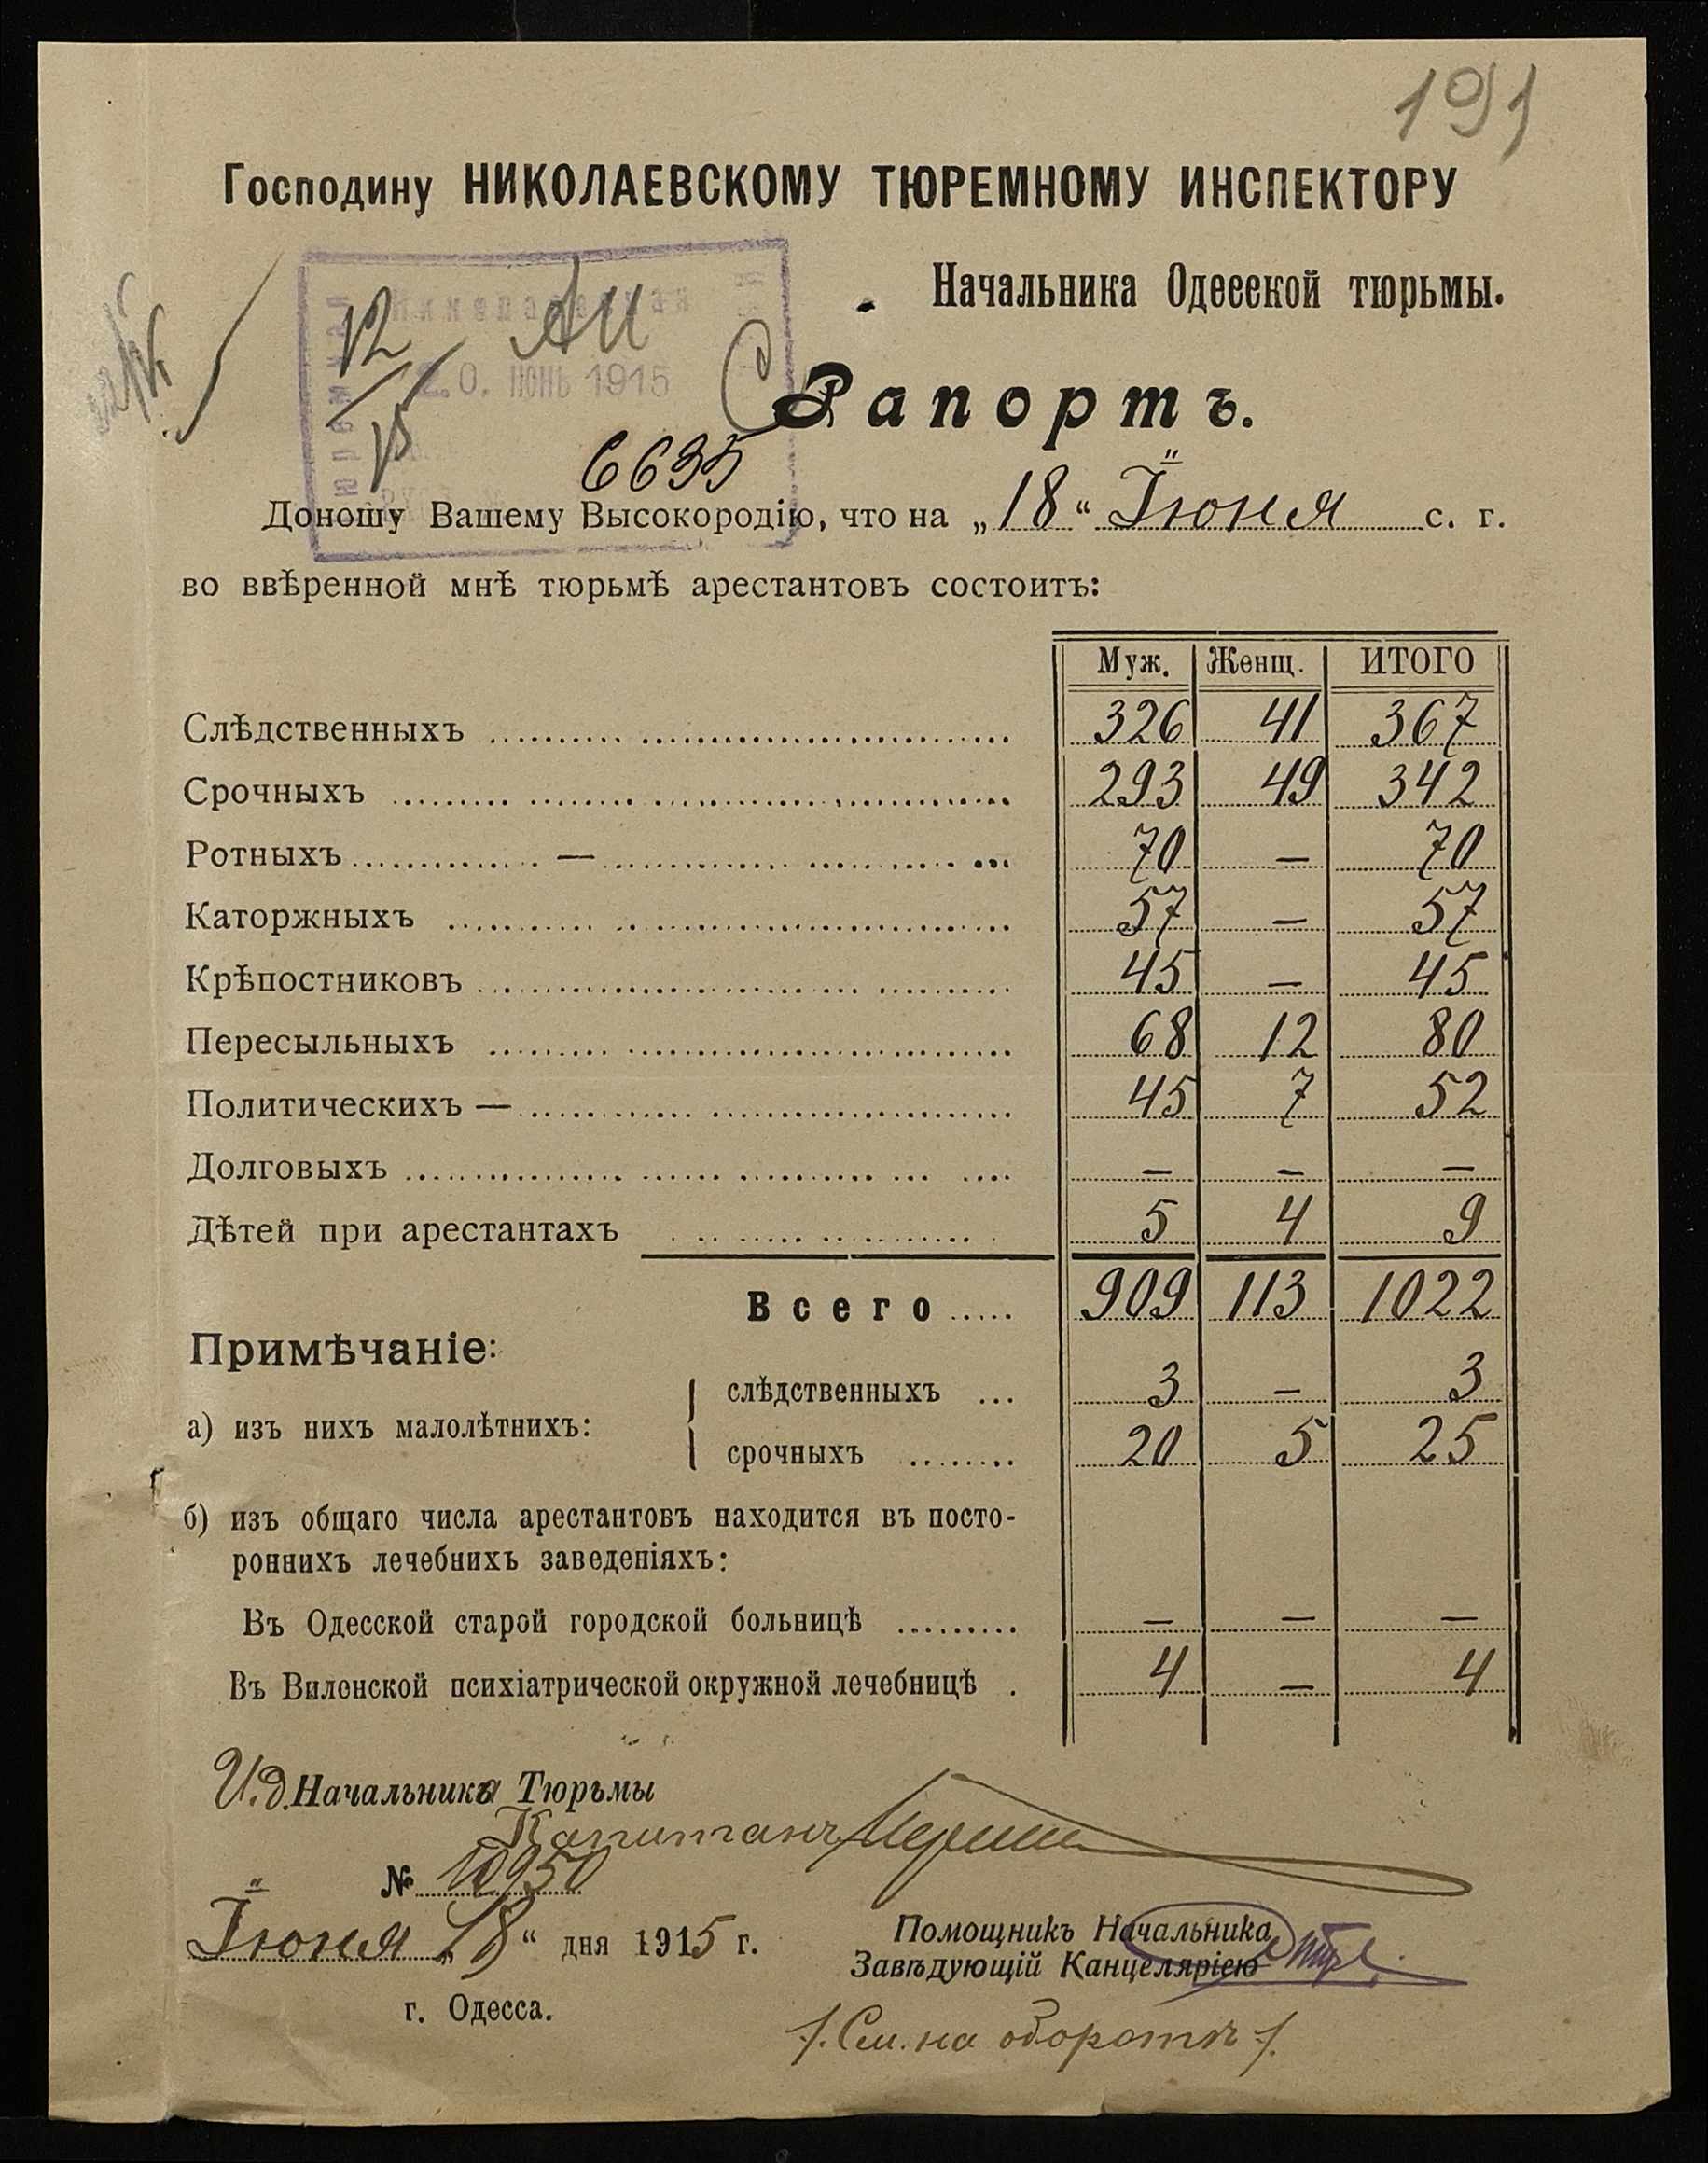 191
Господину НИКОЛАЕВСКОМУ ТЮРЕМНОМУ ИНСПЕКТОРУ
Начальника Одесской тюрьмы.
12 АИ
20. ИЮНЬ 1915
15
Рапортъ.
6695
Доношу Вашему Высокородію, что на „18“ Іюня с. г.
во ввѣренной мнѣ тюрьмѣ арестантовъ состоитъ:
Муж. Женщ. ИТОГО
Слѣдственныхъ 326 41 367
Срочныхъ 293 49 342
Ротныхъ — 70 — 70
Каторжныхъ 57 — 57
Крѣпостниковъ 45 — 45
Пересыльныхъ 68 12 80
Политическихъ — 45 7 52
Долговыхъ — — —
Дѣтей при арестантахъ 5 4 9
Всего 909 113 1022
Примѣчаніе:
слѣдственныхъ 3 — 3
а) изъ нихъ малолѣтнихъ:
срочныхъ 20 5 25
б) изъ общаго числа арестантовъ находится въ посто-
роннихъ лечебнихъ заведеніяхъ:
Въ Одесской старой городской больницѣ — — —
Въ Виленской психіатрической окружной лечебницѣ 4 — 4
И.д. Начальника Тюрьмы
Капитанъ
№ 10950
Іюня „18“ дня 1915 г.
Помощникъ Начальника
Завѣдующій Канцеляріею
г. Одесса.
/. См. на оборотѣ /.